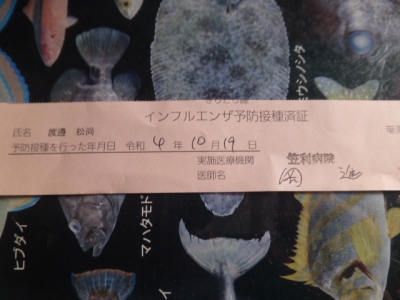 インフルエンザ予防接種済証
氏名 渡邉 松尚
予防接種を行った年月日 令和 4 年 10 月 19 日
実施医療機関 笠利病院
医師名
ウシノシタ
ヒブダイ
マハタモド
奄美